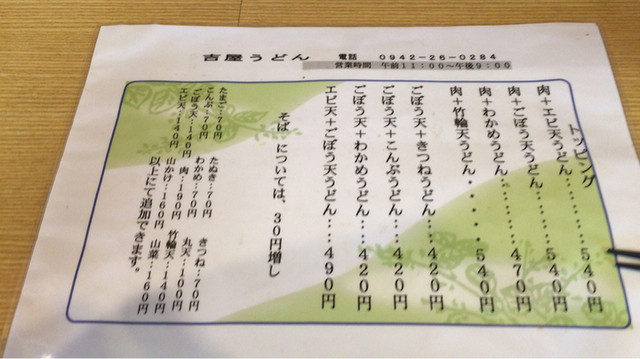 吉屋うどん　電話　0942-26-0284
営業時間　午前11:00～午後9:00
トッピング
肉+エビ天うどん………540円
肉+ごぼう天うどん………540円
肉+わかめうどん………470円
肉+竹輪天うどん・・・・・540円
ごぼう天+きつねうどん…420円
ごぼう天+こんぶうどん…420円
ごぼう天+わかめうどん…420円
エビ天+ごぼう天うどん…490円
そば、については、30円増し
たまご…70円　たぬき…70円　きつね…70円
こんぶ…70円　わかめ…70円　丸天…100円
ごぼう天…140円　肉…190円　竹輪天…140円
エビ天…140円　山かけ…160円　山菜…160円
以上にて追加できます。